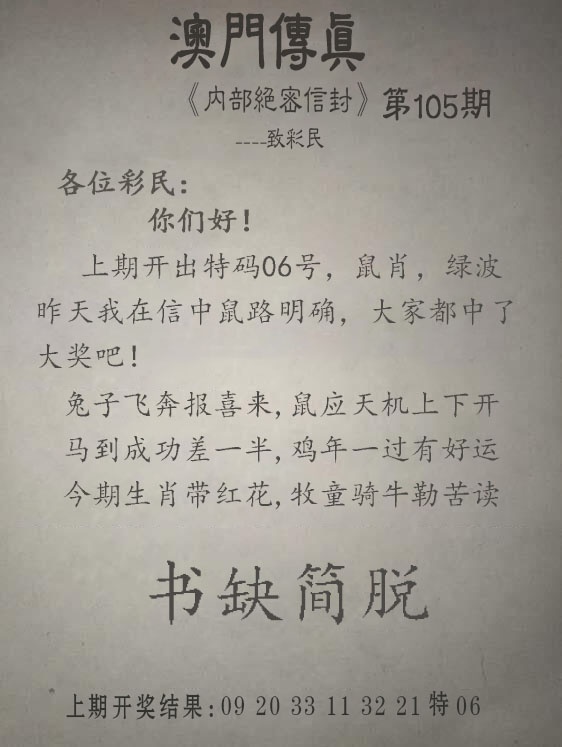 澳門傳眞
《内部絕密信封》第105期
----致彩民
各位彩民:
你们好!
上期开出特码06号, 鼠肖, 绿波
昨天我在信中鼠路明确, 大家都中了
大奖吧!
兔子飞奔报喜来,鼠应天机上下开
马到成功差一半,鸡年一过有好运
今期生肖带红花,牧童骑牛勒苦读
书缺简脱
上期开奖结果:09 20 33 11 32 21特06